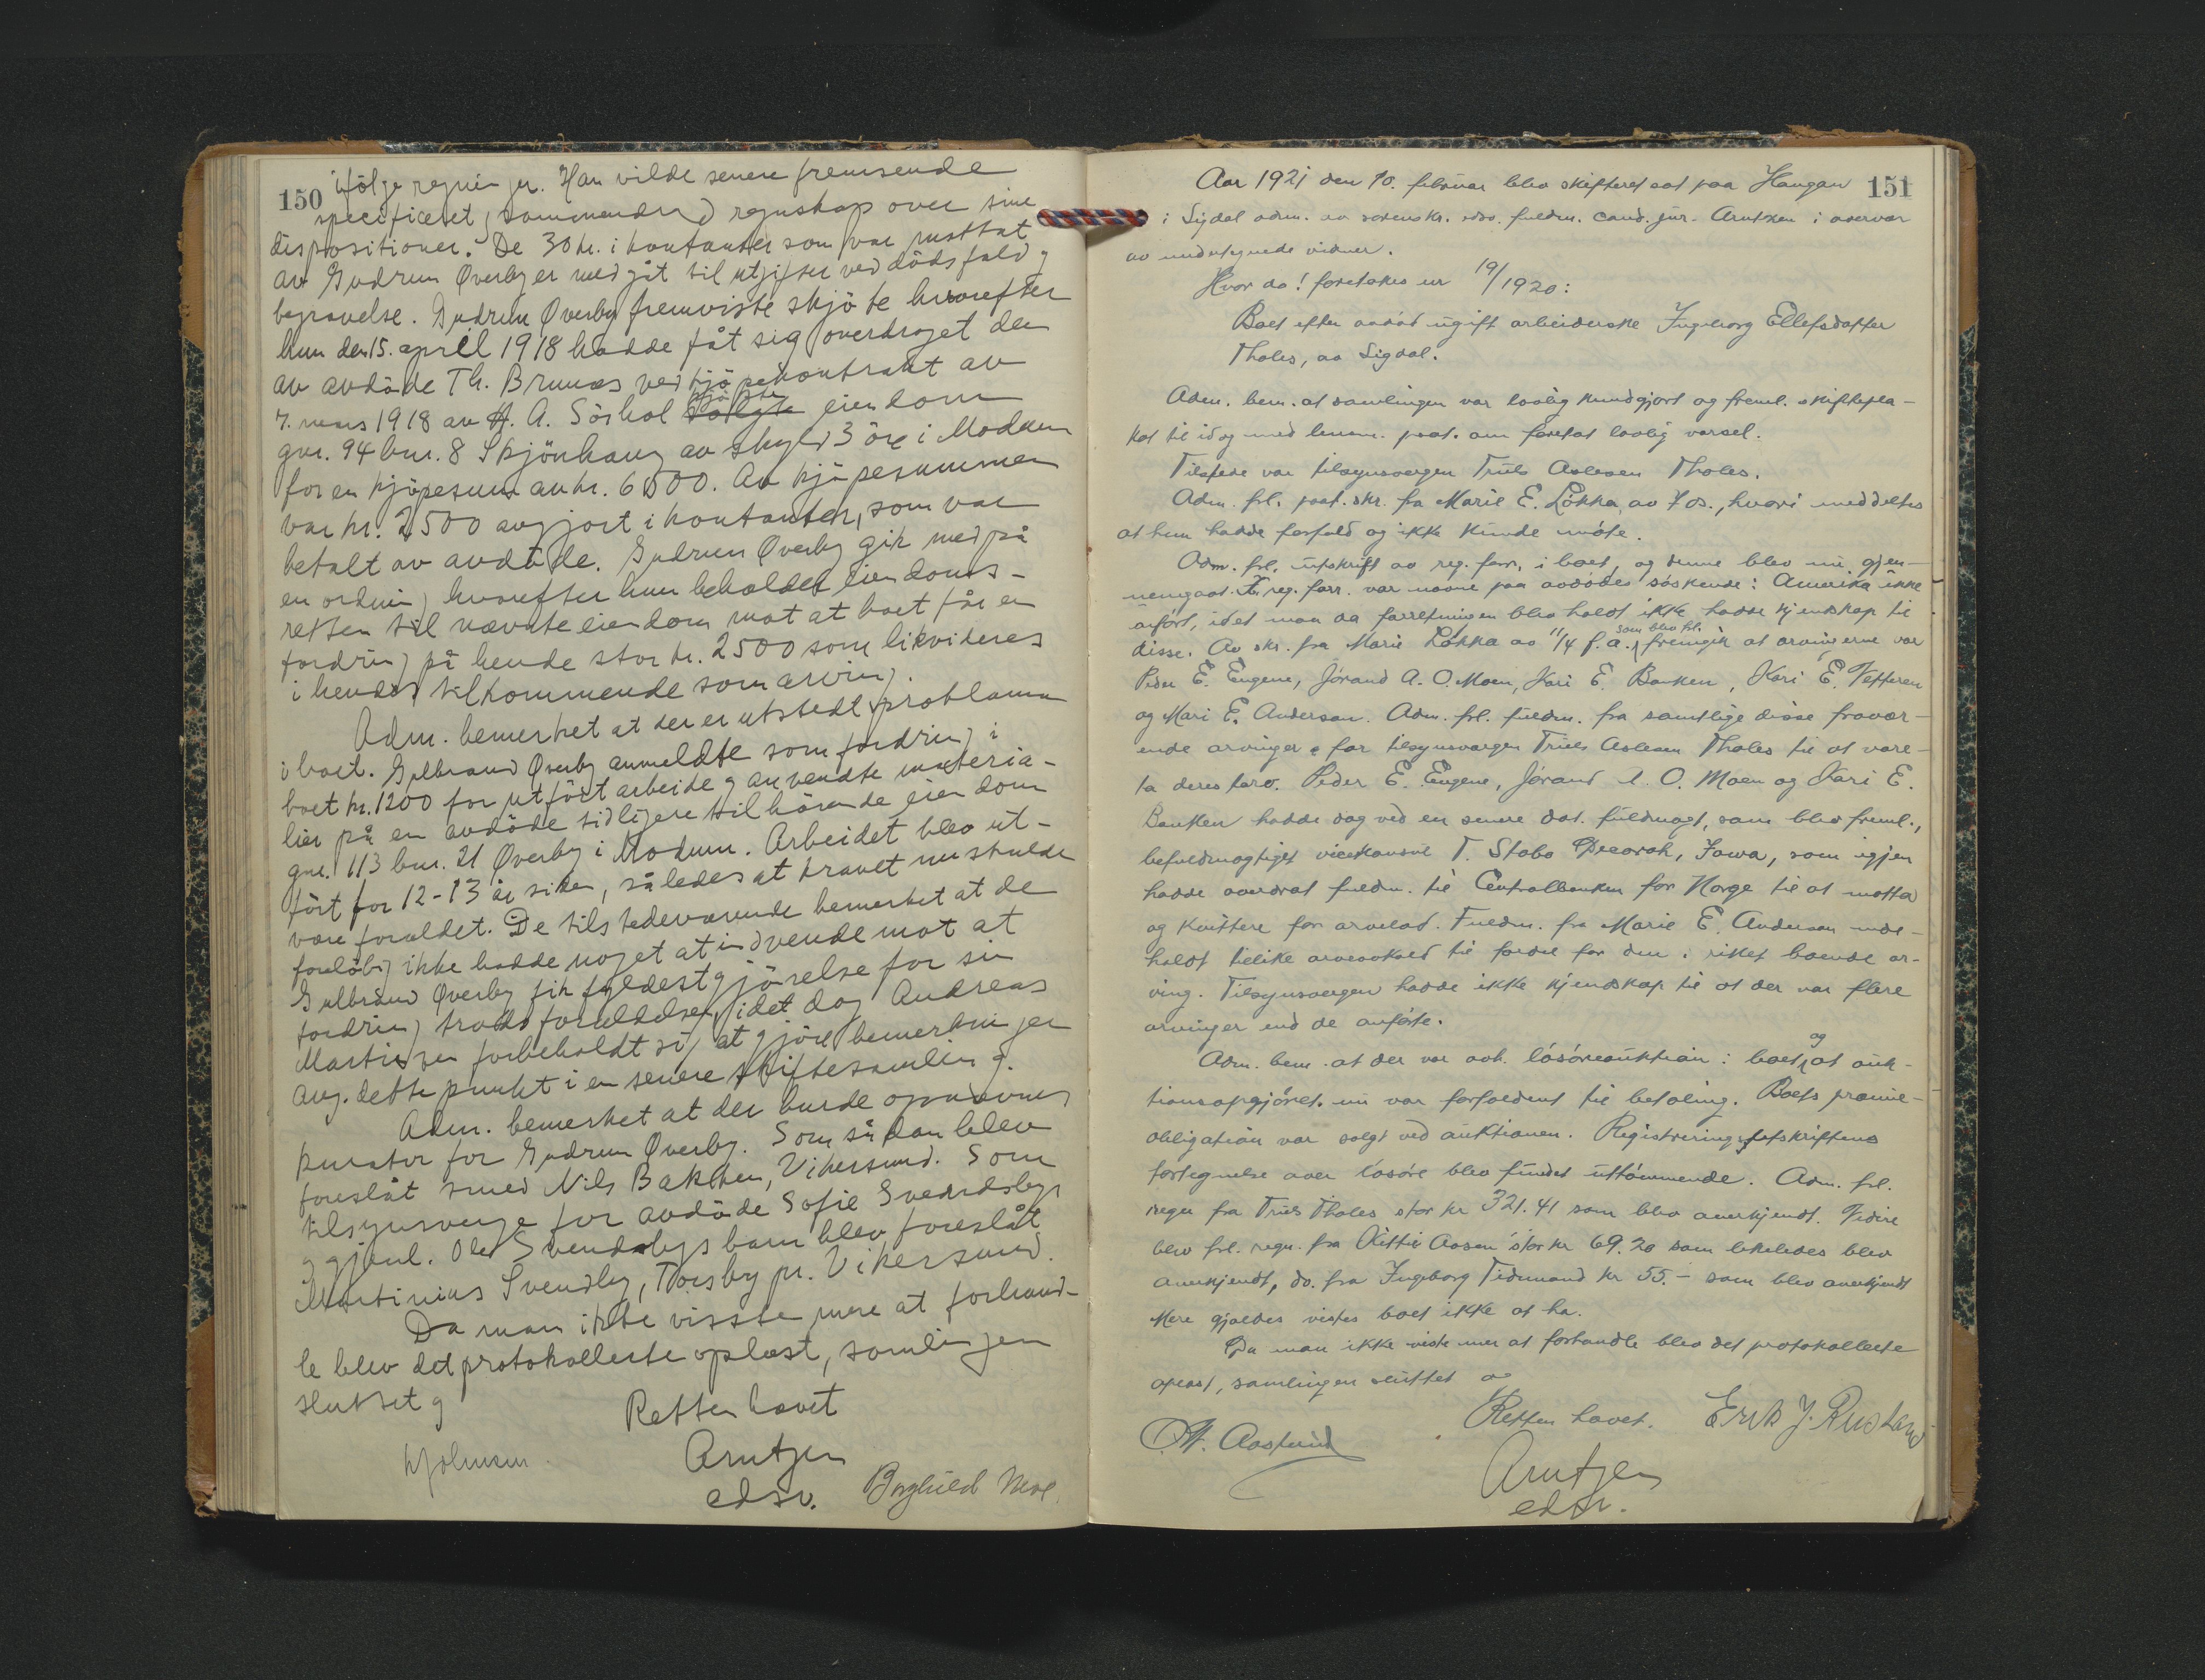 150 ifølge regninger. Han vilde senere fremsende
specificeret, sammendrag regnskap over sine
dispositioner. De 30 kr. i kontanter som var mottat
av Gudrun Øverby er medgåt til utgifter ved dödsfald og
begravelse. Gudrun Øverby fremviste skjöte hvorefter
hun den 15. april 1918 hadde fåt sig overdraget den
av avdöde Th. Brunæs ved kjöpekontrakt av
7. mars 1918 av H. A. Sörhol kjöpte eiendom
gnr. 94 bnr. 8 Skjönhaug av skyld 3 öre i Modum
for en kjöpesum av kr. 6500. Av kjöpesummen
var kr. 2500 avgjort i kontanter, som var
betalt av avdöde. Gudrun Øverby gik med på
en ordning hvorefter hun beholder eiendoms-
retten til nævnte eiendom mot at boet får en
fordring på hende stor kr. 2500 som likvideres
i hendes tilkommende som arving.
Adm. bemerket at der er utstedt proklama
i boet. Gulbrand Øverby anmeldte som fordring i
boet kr. 1200 for utfört arbeide og anvendte materia-
lier på en avdöde tidligere tilhörende eiendom
gnr. 113 bnr. 21 Øverby i Modum. Arbeidet blev ut-
fört for 12-13 år siden, således at kravet nu skulde
være foraldet. De tilstedeværende bemerket at de
foreløbig ikke hadde noget at indvende mot at
Gulbrand Øverby fik fyldestgjörelse for sin
fordring trods foraldelsen, idet dog Andreas
Martinsen forbeholdt sig at gjöre bemerkninger
ang. dette punkt i en senere skiftesamling.
Adm. bemerket at der burde opnævnes
kurator for Gudrun Øverby. Som sådan blev
foreslåt smed Nils Bakken, Vikersund. Som
tilsynsverge for avdöde Sofie Svendsbys
og gjenl. Ole Svendsbys barn blev foreslåt
Martinius Svendby, Thorsby pr. Vikersund.
Da man ikke visste mere at forhand-
le blev det protokollerte oplæst, samlingen
sluttet og
Retten hævet
Arntzen
edsv.
Borghild Moe.
151
Aar 1921 den 10. februar blev skifteret sat paa Haugan
i Sigdal adm. av sorenskr. edsv. fuldm. cand. jur. Arntzen i overvær
av undertegnede vidner.
Hvor da! foretokes nr 19/1920:
Boet efter avdöd ugift arbeiderske Ingeborg Ellefsdatter
Tholes, av Sigdal.
Adm. bem. at samlingen var lovlig kundgjort og freml. skiftepla-
kat til idag med lensm. paat. om foretat lovlig varsel.
Tilstede var tilsynsvergen Truls Aslesen Tholes.
Adm. frl. paat. skr. fra Marie E. Løkka av 7 ds., hvori meddeltes
at hun hadde forfald og ikke kunde møte.
Adm. frl. utskrift av reg. forr. i boet, og denne blev nu gjen-
nemgaat. I reg. forr. var navne paa avdødes søskende i Amerika ikke
anført, idet man da forretningen blev holdt ikke hadde kjendskap til
disse. Av skr. fra Marie Løkka av 11/4 f. a. som blev frl. fremgik at arvingerne var
Peder E. Eugene, Jørand A. O. Moen, Kari E. Banken, Kari E. Vefferen
og Mari E. Anderson. Adm. frl. fuldm. fra samtlige disse fravær-
ende arvinger for tilsynsvergen Truls Aslesen Tholes til at vare-
ta deres tarv. Peder E. Eugene, Jørand A. O. Moen og Kari E.
Banken hadde dog ved en senere dat. fuldmagt, som blev freml.,
befuldmægtiget vicekonsul T. Stabo Decorah, Iowa, som igjen
hadde overdrat fuldm. til Centralbanken for Norge til at motta
og kvittere for arvelod. Fuldm. fra Marie E. Anderson inde-
holdt tillike arveavkald til fordel for den i riket boende ar-
ving. Tilsynsvergen hadde ikke kjendskap til at der var flere
arvinger end de anførte.
Adm. bem. at der var avh. løsøreauktion i boet, og at auk-
tionsopgjøret nu var forfaldent til betaling. Boets præmie-
obligation var solgt ved auktionen. Registreringsutskriftens
fortegnelse over løsøre blev fundet uttømmende. Adm. frl.
regn. fra Truls Tholes stor kr 321.41 som blev anerkjendt. Videre
blev frl. regn. fra Kittil Aasen stor kr 69.20 som likeledes blev
anerkjendt, do. fra Ingeborg Tidemand kr 55.- som blev anerkjendt
Mere gjæld vistes boet ikke at ha.
Da man ikke viste mer at forhandle blev det protokollerte
oplæst, samlingen sluttet og
Retten hævet.
Erik J. Rustand
A. Aaslund
Arntzen
edsv.